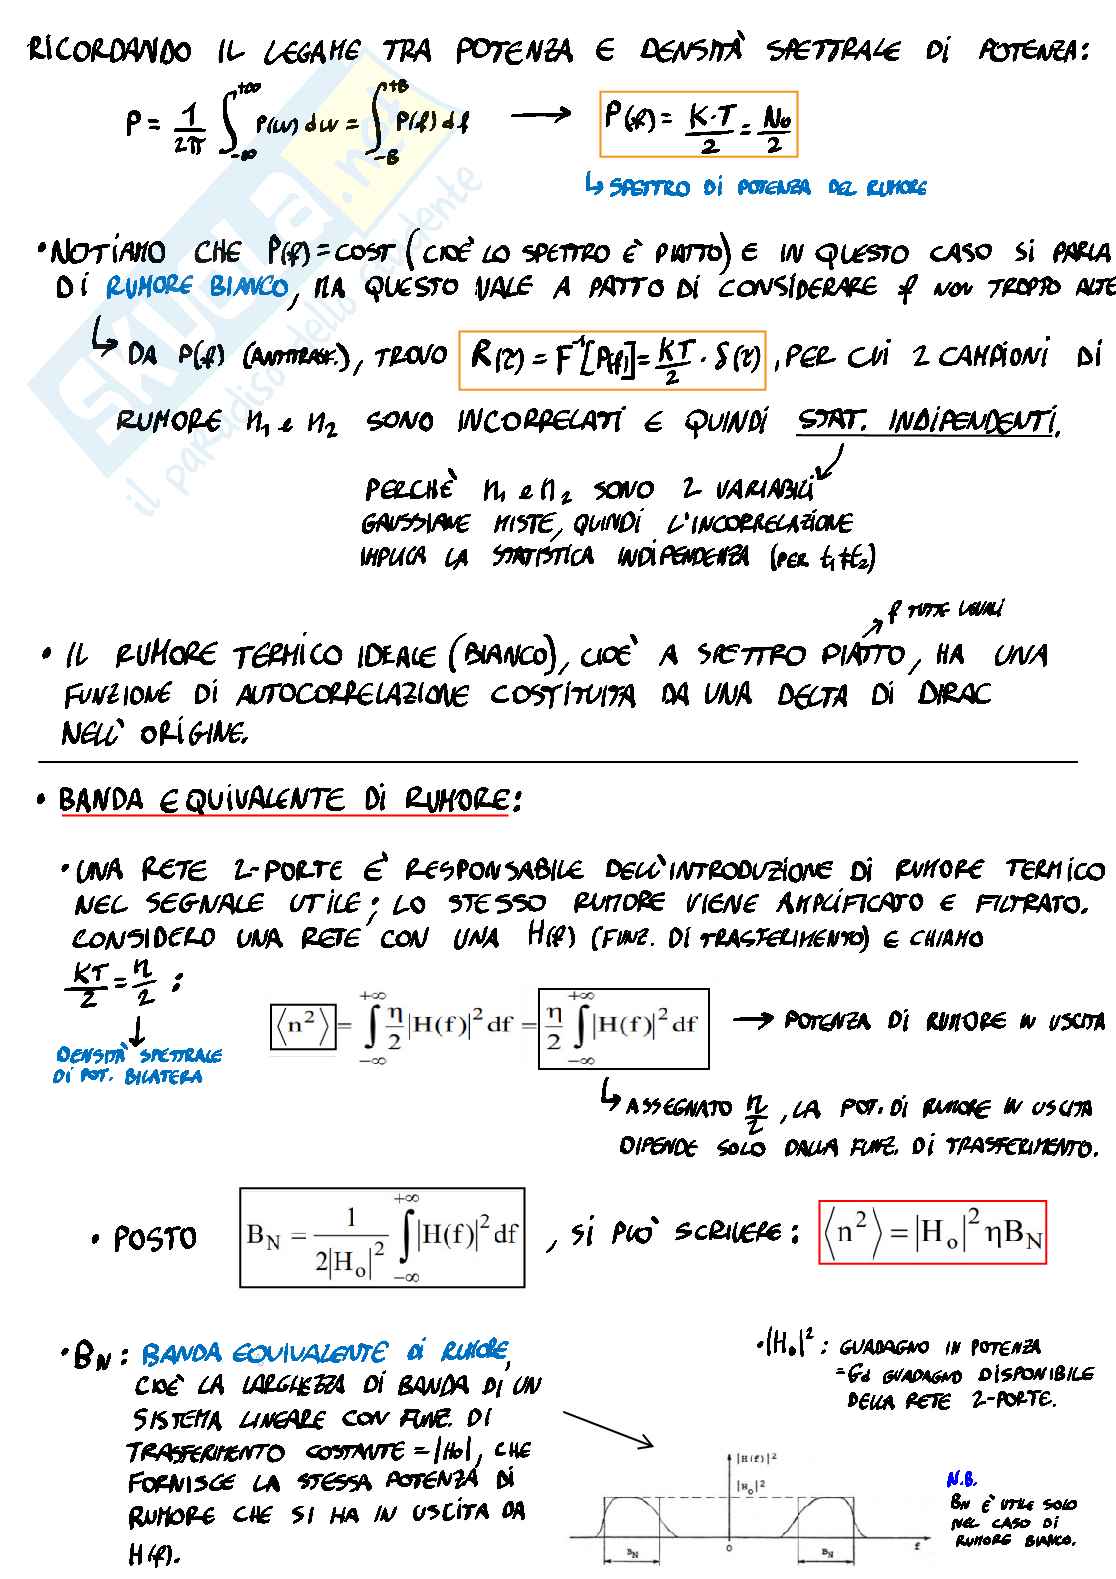 RICORDANDO IL LEGAME TRA POTENZA E DENSITÀ SPETTRALE DI POTENZA:
P = 1/2π ∫_{-∞}^{+∞} P(w) dw = ∫_{-B}^{+B} P(f) df → P(f) = K·T/2 = N₀/2
↳ SPETTRO DI POTENZA DEL RUMORE
• NOTIAMO CHE P(f) = COST (CIOÈ LO SPETTRO È PIATTO) E IN QUESTO CASO SI PARLA
DI RUMORE BIANCO, MA QUESTO VALE A PATTO DI CONSIDERARE f NON TROPPO ALTE
↳ DA P(f) (ANTITRASF.), TROVO R(τ) = F⁻¹[P(f)] = KT/2 · δ(τ), PER CUI 2 CAMPIONI DI
RUMORE n₁ e n₂ SONO INCORRELATI E QUINDI STAT. INDIPENDENTI.
PERCHÈ n₁ e n₂ SONO 2 VARIABILI
GAUSSIANE MISTE, QUINDI L'INCORRELAZIONE
IMPLICA LA STATISTICA INDIPENDENZA (PER t₁≠t₂)
f TUTTE UGUALI
• IL RUMORE TERMICO IDEALE (BIANCO), CIOÈ A SPETTRO PIATTO, HA UNA
FUNZIONE DI AUTOCORRELAZIONE COSTITUITA DA UNA DELTA DI DIRAC
NELL'ORIGINE.
• BANDA EQUIVALENTE DI RUMORE:
• UNA RETE 2-PORTE È RESPONSABILE DELL'INTRODUZIONE DI RUMORE TERMICO
NEL SEGNALE UTILE; LO STESSO RUMORE VIENE AMPLIFICATO E FILTRATO.
CONSIDERO UNA RETE CON UNA H(f) (FUNZ. DI TRASFERIMENTO) E CHIAMO
KT/2 = η/2 :
⟨n²⟩ = ∫_{-∞}^{+∞} η/2 |H(f)|² df = η/2 ∫_{-∞}^{+∞} |H(f)|² df → POTENZA DI RUMORE IN USCITA
DENSITÀ SPETTRALE
DI POT. BILATERA
↳ ASSEGNATO η/2, LA POT. DI RUMORE IN USCITA
DIPENDE SOLO DALLA FUNZ. DI TRASFERIMENTO.
• POSTO B_N = 1/(2|H_o|²) ∫_{-∞}^{+∞} |H(f)|² df , SI PUÒ SCRIVERE: ⟨n²⟩ = |H_o|² ηB_N
• B_N: BANDA EQUIVALENTE DI RUMORE,
CIOÈ LA LARGHEZZA DI BANDA DI UN
SISTEMA LINEARE CON FUNZ. DI
TRASFERIMENTO COSTANTE = |H₀|, CHE
FORNISCE LA STESSA POTENZA DI
RUMORE CHE SI HA IN USCITA DA
H(f).
• |H₀|² : GUADAGNO IN POTENZA
= Gd GUADAGNO DISPONIBILE
DELLA RETE 2-PORTE.
|H(f)|²
|H_o|²
B_N
0
B_N
f
N.B.
B_N È UTILE SOLO
NEL CASO DI
RUMORE BIANCO.
SKUOLA.net
il paradiso dello studente